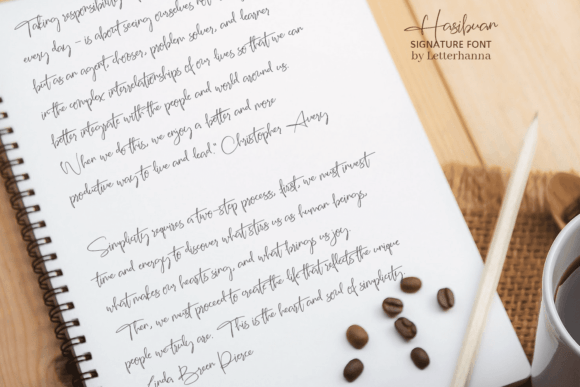 Taking responsibility
every day – is about seeing ourselves not
but as an agent, chooser, problem solver, and learner
in the complex interrelationships of our lives so that we can
better integrate with the people and world around us.
When we do this, we enjoy a better and more
productive way to live and lead." Christopher Avery
Simplicity requires a two-step process, first, we must invest
time and energy to discover what stirs us as human beings,
what makes our hearts sing, and what brings us joy.
Then, we must proceed to create the life that reflects the unique
people we truly are. This is the heart and soul of simplicity.
Linda Breen Pierce
Hasibuan
SIGNATURE FONT
by Letterhanna